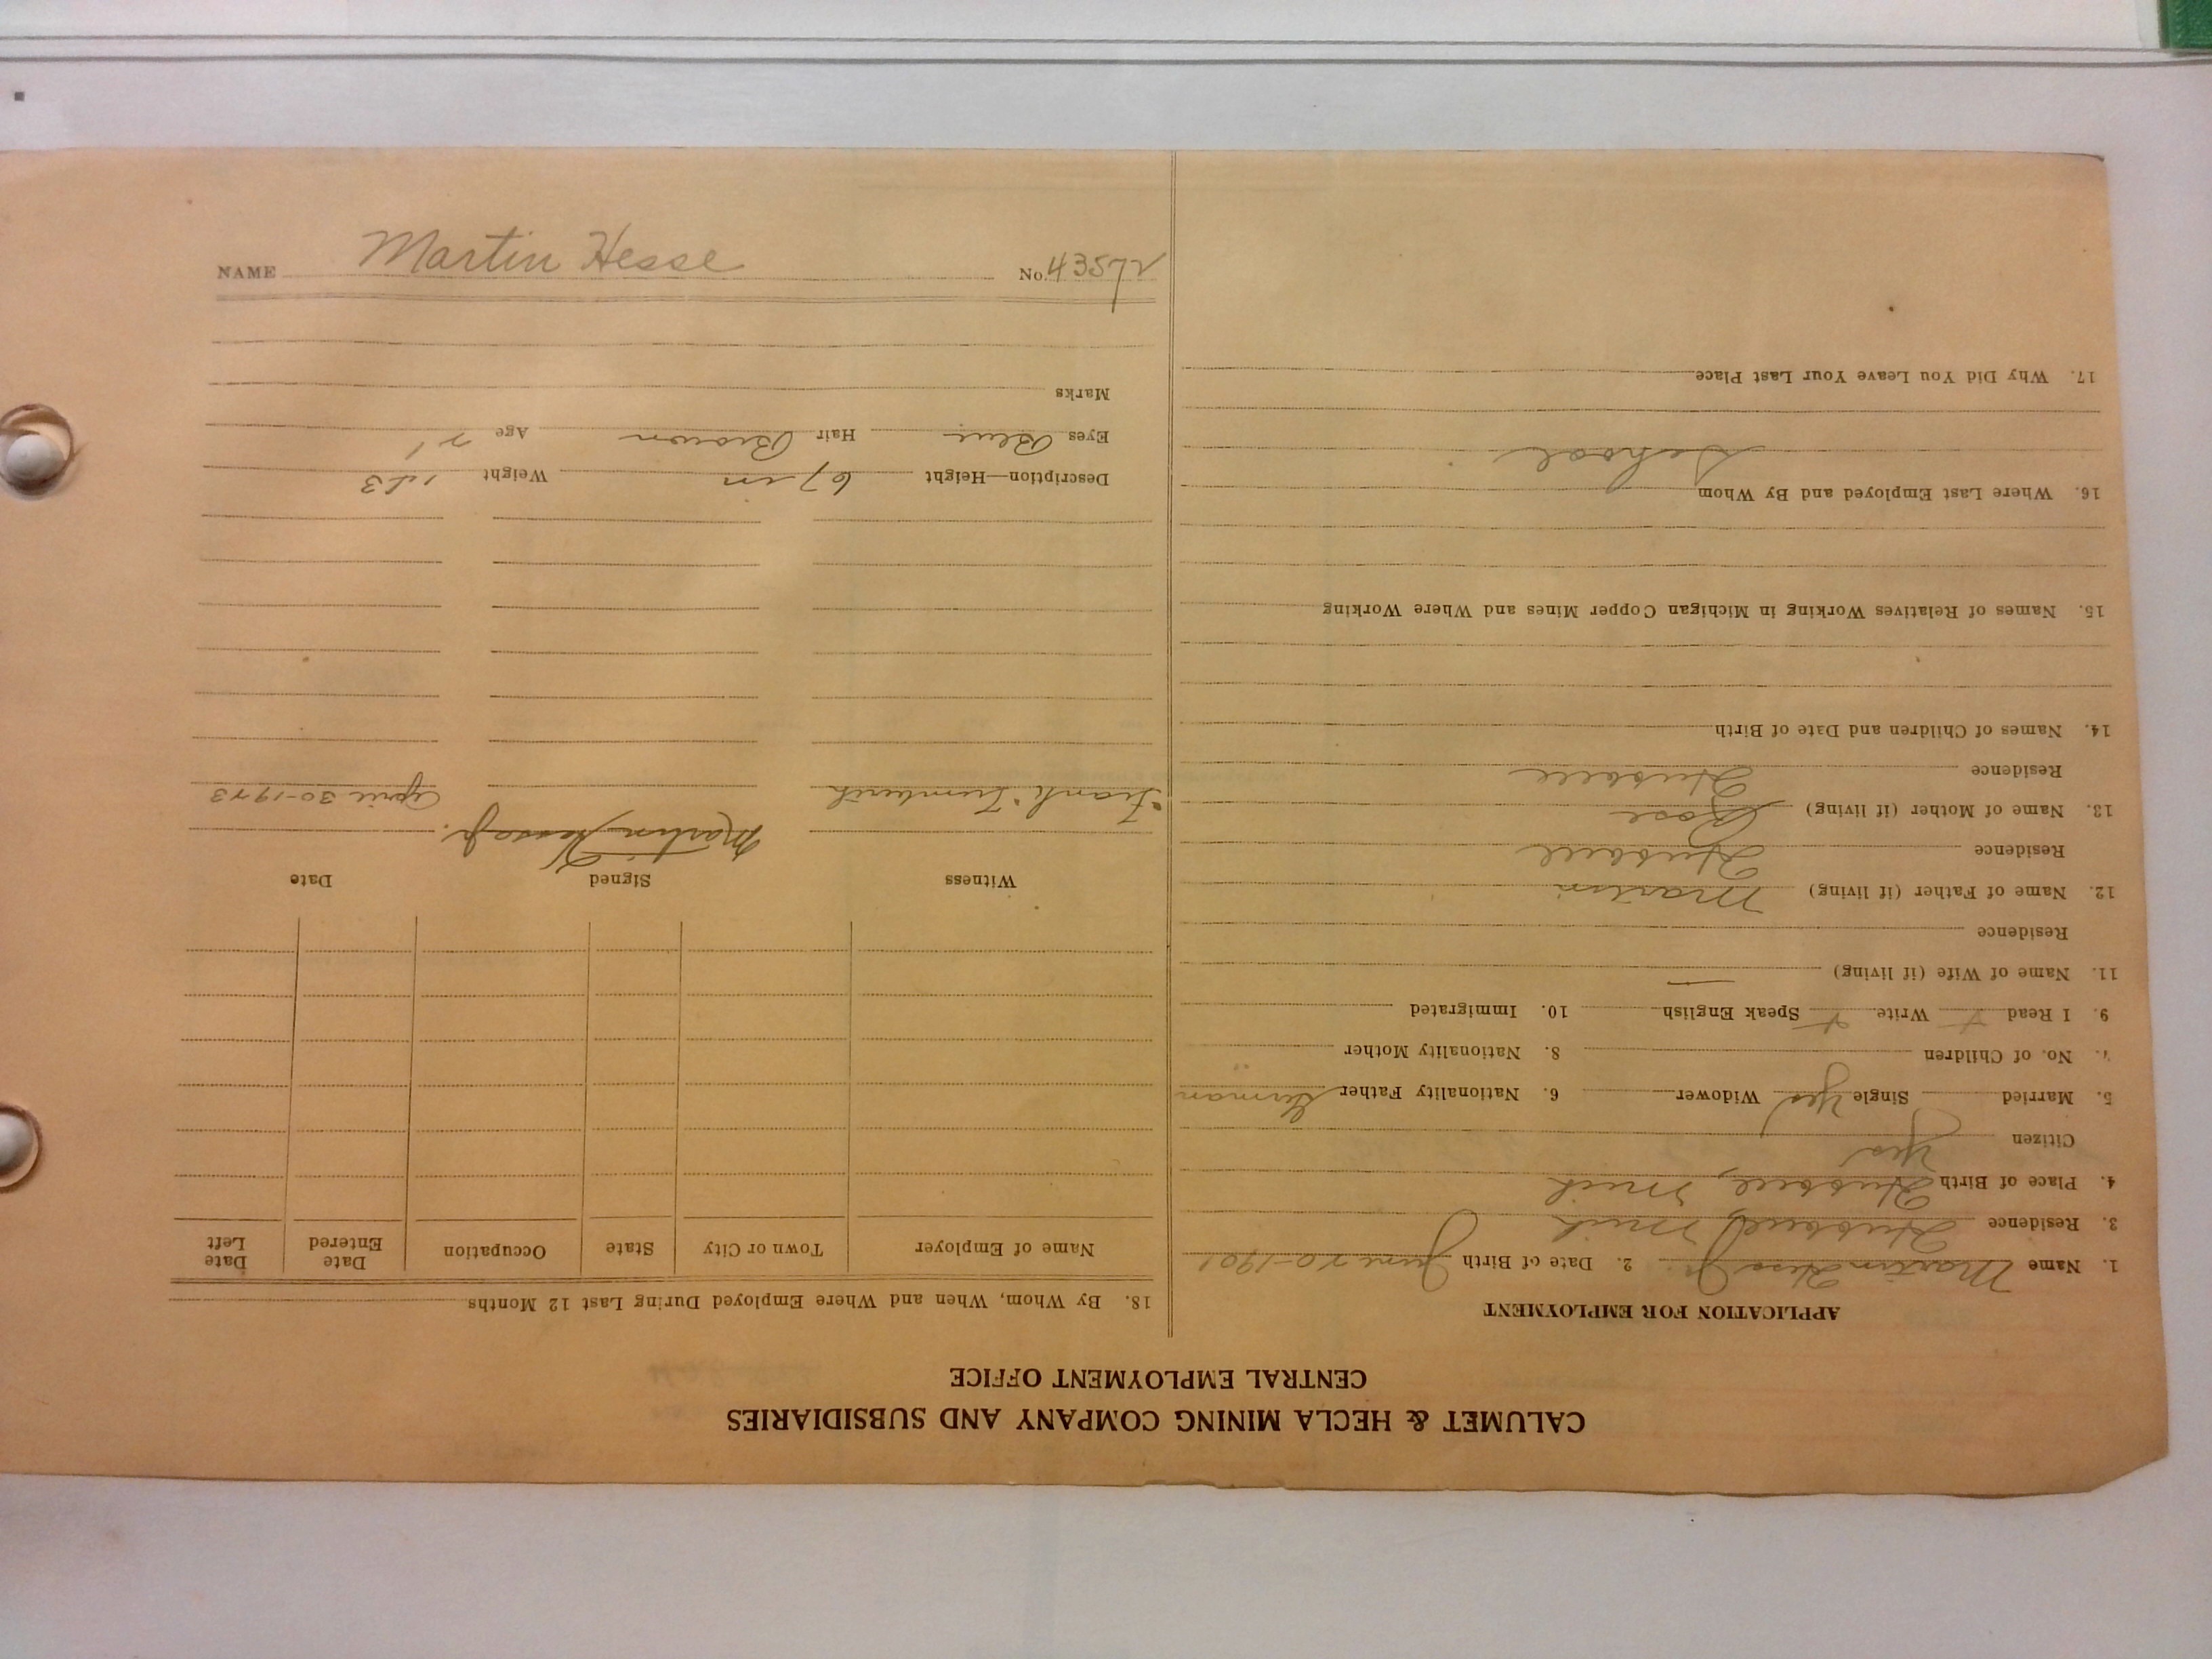 CALUMET & HECLA MINING COMPANY AND SUBSIDIARIES
CENTRAL EMPLOYMENT OFFICE
APPLICATION FOR EMPLOYMENT
1. Name Martin Hesse Jr. 2. Date of Birth June 20-1901
3. Residence Hubbell, Mich
4. Place of Birth Hubbell, Mich
Citizen Yes
5. Married Single Yes Widower 6. Nationality Father German
7. No. of Children 8. Nationality Mother
9. I Read + Write + Speak English 10. Immigrated
11. Name of Wife (if living) —
Residence
12. Name of Father (if living) Martin
Residence Hubbell
13. Name of Mother (if living) Rose
Residence Hubbell
14. Names of Children and Date of Birth
15. Names of Relatives Working in Michigan Copper Mines and Where Working
16. Where Last Employed and By Whom
School
17. Why Did You Leave Your Last Place
18. By Whom, When and Where Employed During Last 12 Months
Name of Employer Town or City State Occupation Date Entered Date Left
Witness Signed Date
Frank Martin Hesse Jr. April 30-1923
Description—Height 67 in Weight 153
Eyes Blue Hair Brown Age 21
Marks
NAME Martin Hesse No. 43572